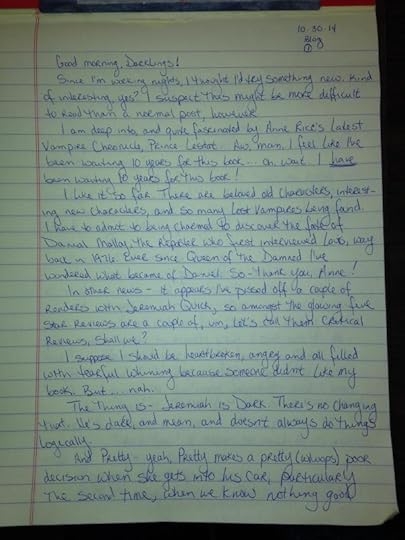 10.30.14
Blog
①
Good morning, Darklings!
Since I'm working nights, I thought I'd try something new. Kind
of interesting, yes? I suspect this might be more difficult
to read than a normal post, however.
I am deep into, and quite fascinated by Anne Rice's latest
Vampire Chronicle, Prince Lestat. Aw, man. I feel like I've
been waiting 10 years for this book... oh, wait. I have
been waiting 10 years for this book!
I like it so far. There are beloved old characters, interest-
ing new characters, and so many lost vampires being found.
I have to admit to being charmed to discover the fate of
Daniel Malloy, the Reporter who first interviewed Louis, way
back in 1976. Ever since Queen of the Damned I've
wondered what became of Daniel. So - thank you, Anne!
In other news - it appears I've pissed off a couple of
readers with Jeremiah Quick, so amongst the glowing five
star reviews are a couple of, um, let's call them Critical
Reviews, shall we?
I suppose I should be heartbroken, angry and all filled
with tearful whining because someone didn't like my
book. But... nah.
The Thing is - Jeremiah is Dark. There's no changing
that. He's dark, and mean, and doesn't always do things
logically.
And Pretty - yeah, Pretty makes a pretty (whoops) poor
decision when she gets into his car, particularly
the second time, when we know nothing good